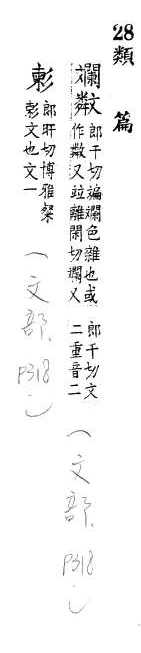 28 類 篇
斕 郎干切斒斕色雜也或
作 又竝離閑切斕又
郎干切文
二重音二
(文部.P318)
郎旰切博雅粲
彰文也文一
(文部.P318)